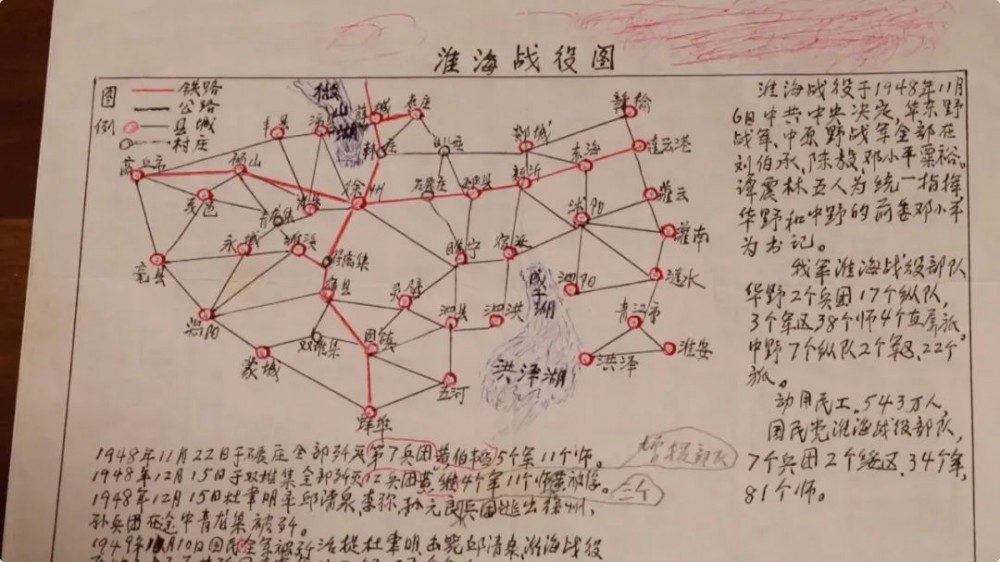 淮海战役图
图例
铁路
公路
县城
村庄
微山湖
枣庄
丰县
赣榆
郯城
连云港
东海
新沂
砀山
徐州
灌云
沭阳
灌南
夏邑
永城
亳县
睢宁
宿迁
泗阳
涟水
成子湖
灵璧
泗县
泗洪
宿县
固镇
双堆集
蒙城
五河
洪泽湖
洪泽
淮安
清江市
蚌埠
淮海战役于1948年11月
6日中共中央决定,华东野
战军,中原野战军全部在
刘伯承,陈毅,邓小平粟裕,
谭震林五人为统一指挥
华野和中野的前委邓小平
为书记。
我军淮海战役部队
华野2个兵团17个纵队,
3个军区38个师4个直属旅
中野7个纵队2个军区,22个
旅。
动用民工,543万人,
国民党淮海战役部队,
7个兵团2个绥区,34个军
81个师。
1948年11月22日于碾庄全部歼灭第7兵团黄伯韬5个军11个师。
增援部队
1948年12月15日于双堆集全部歼灭12兵团黄维4个军11个师
三个
1948年12月15日杜聿明率邱清泉,李弥,孙元良兵团逃出徐州,
孙兵团在途中青龙集被歼。
1949年1月10日国民党全军被歼活捉杜聿明击毙邱清泉,淮海战役